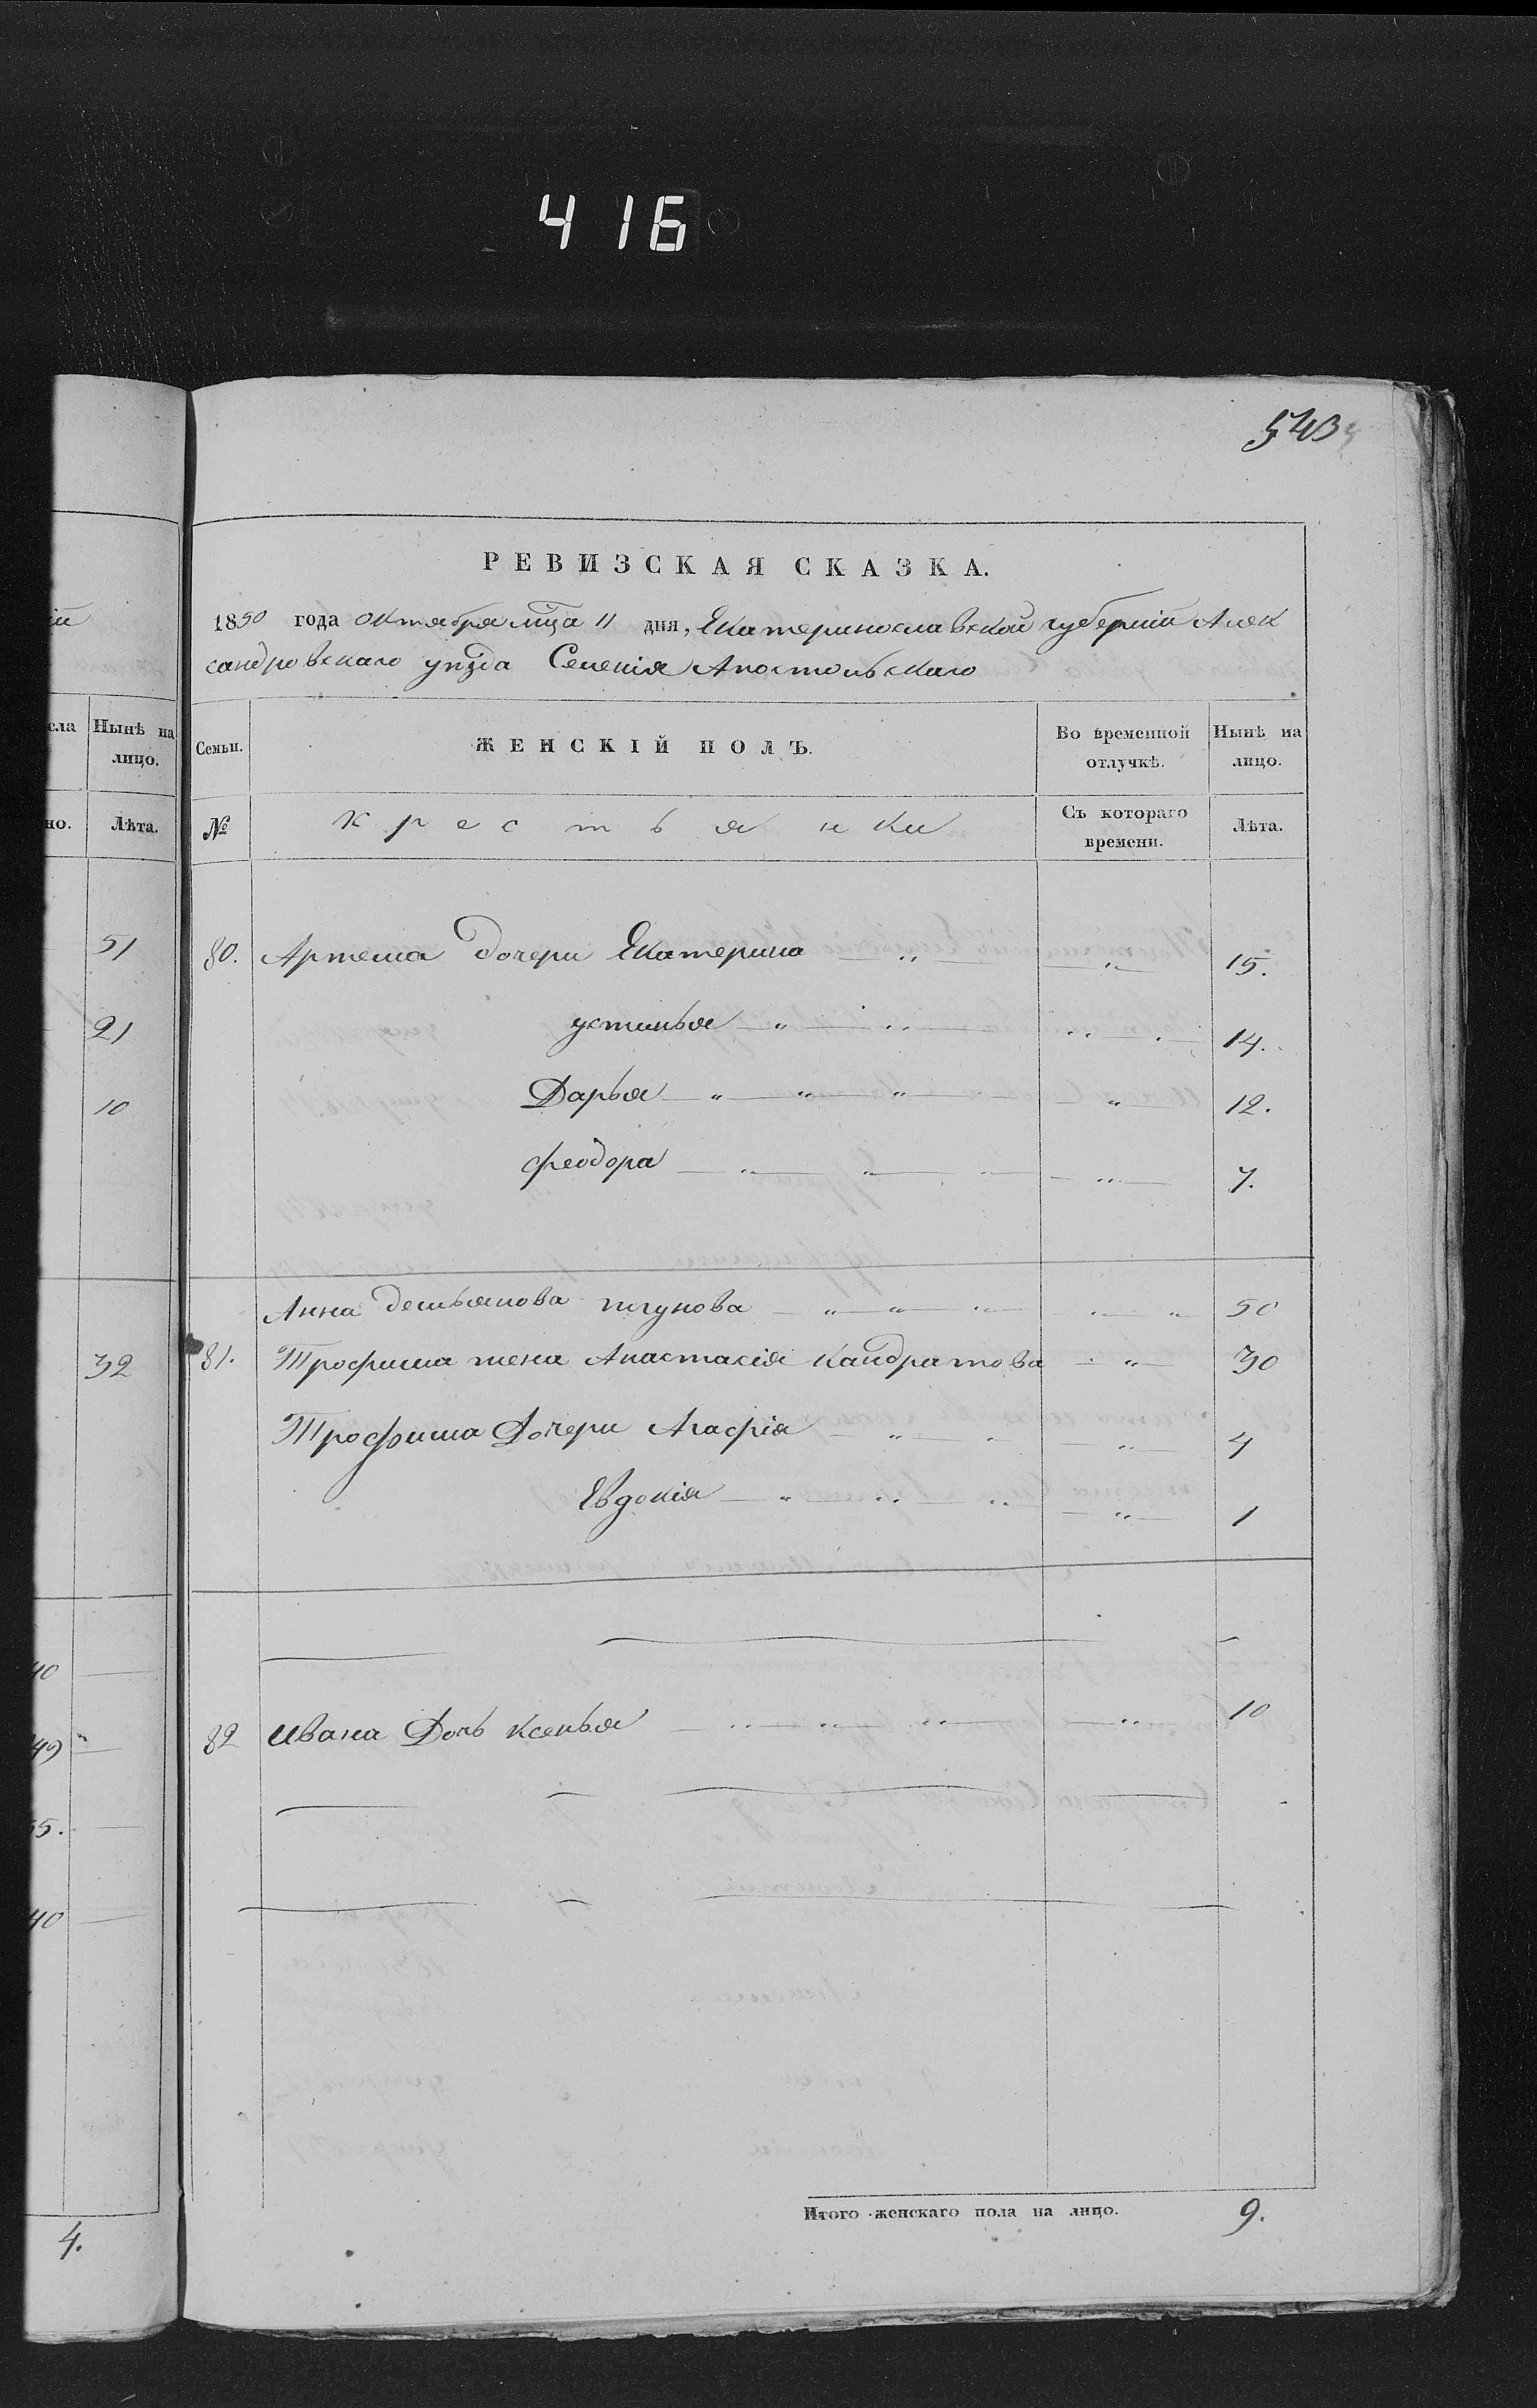 416
543
РЕВИЗСКАЯ СКАЗКА.
1850 года октября мца 11 дня, Екатеринославской губерній Алек
сандровскаго уѣзда Селенія Апостольскаго
сла Нынѣ на лицо.
но. Лѣта.
51
21
10
32
40
49
55.
40
4.
Семьи. ЖЕНСКІЙ ПОЛЪ. Во временной отлучкѣ. Нынѣ на лицо.
№ Крестьянки Съ котораго времени. Лѣта.
80. Артема дочери Екатерина 15.
устинья 14.
Дарья 12.
феодора 7.
Анна демьянова 50
81. Трофима жена Анастасія Кандратова 30
Трофима Дочери Агафія 4
Евдокія 1
82 Ивана Дочь ксенья 10
Итого женскаго пола на лицо. 9.